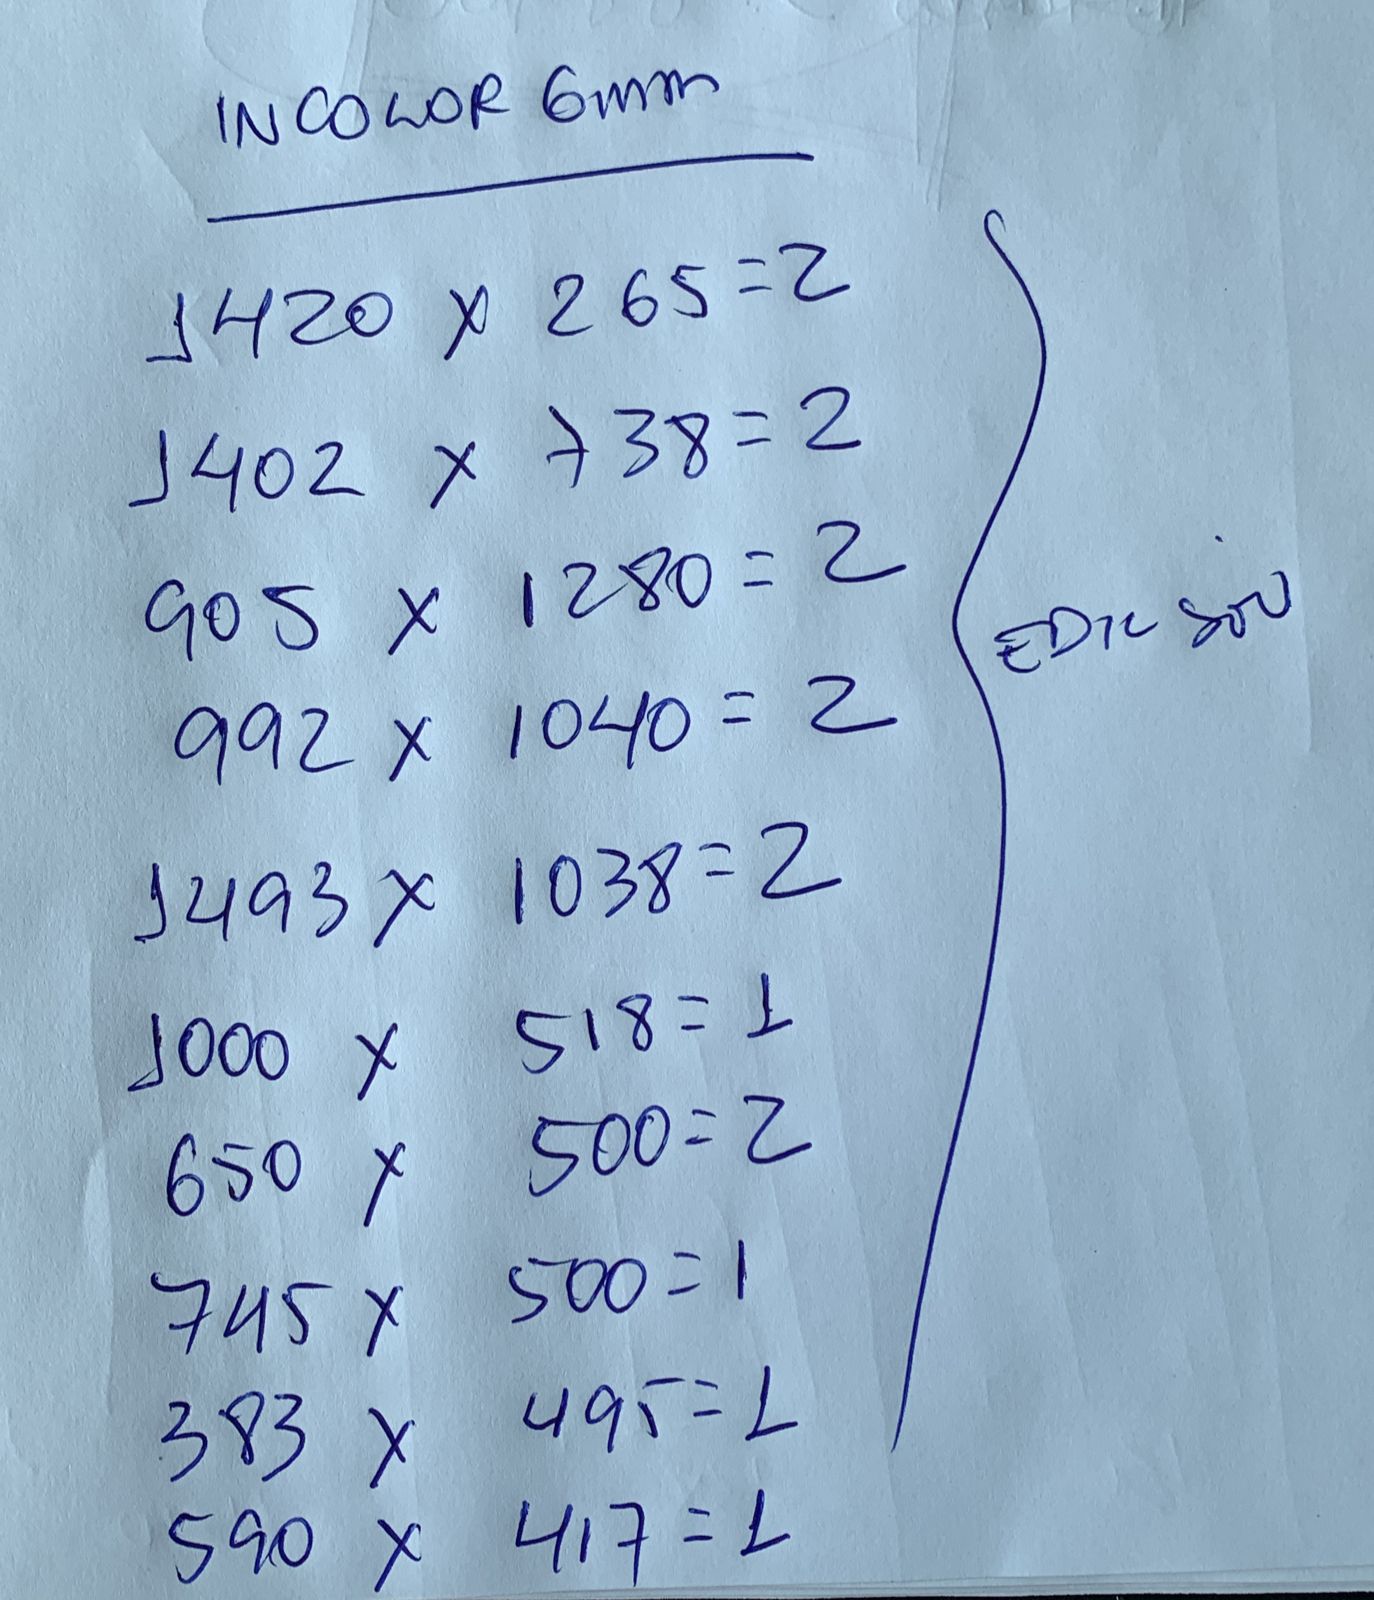 INCOLOR 6mm
1420 x 265=2
1402 x 738=2
905 x 1280=2
992 x 1040=2
1493 x 1038=2
1000 x 518=1
650 x 500=2
745 x 500=1
383 x 495=1
590 x 417=1
EDICSON